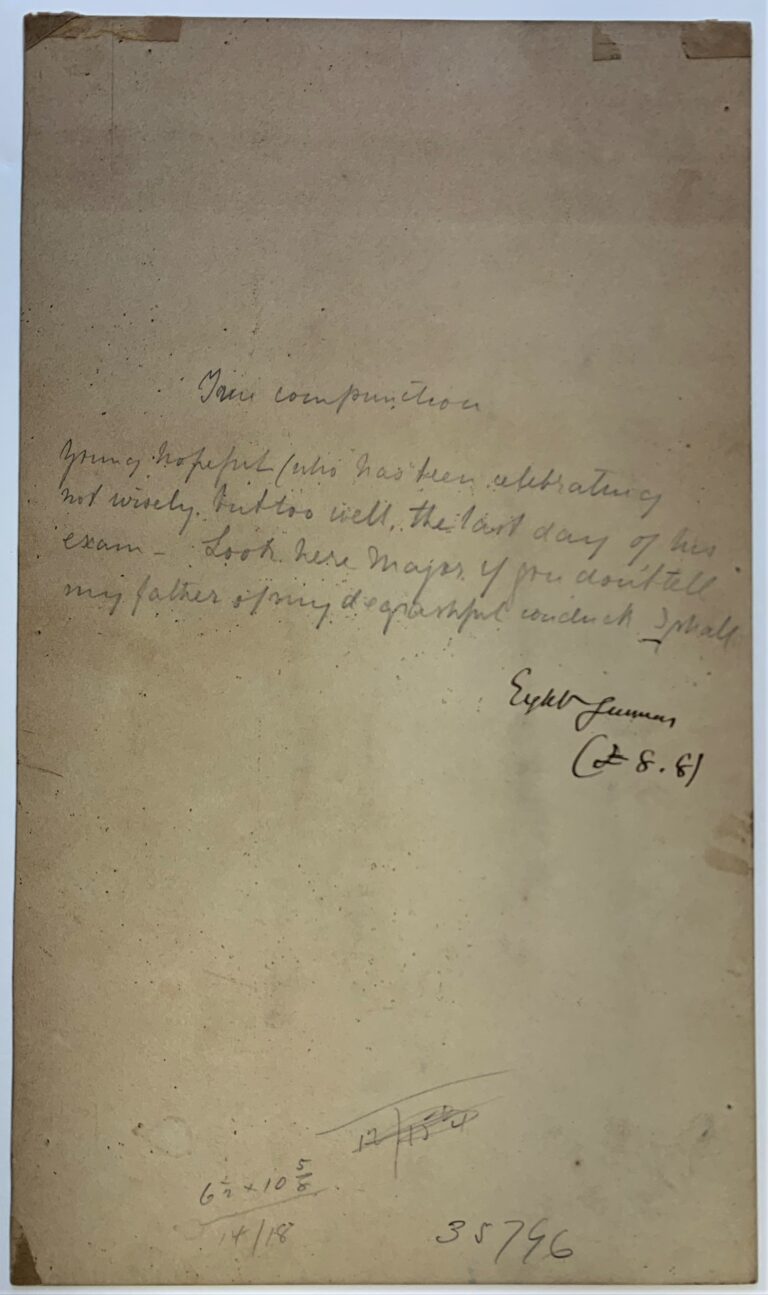 True compunction
Young hopeful (who has been celebrating
not wisely, but too well, the last day of his
exam - Look here Major if you don't tell
my father of my degrashful conduck I shall
Eight Guineas
(£8.8)
12
6½ x 10 5/8
14/18
35796